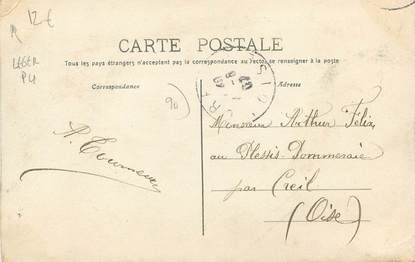 12€
LEGER
PLI
CARTE POSTALE
Tous les pays étrangers n'acceptent pas la correspondance au recto, se renseigner à la poste
Correspondance
Adresse
90
Monsieur Arthur Félix
au Plessis-Pommeraie
par Creil
(Oise)